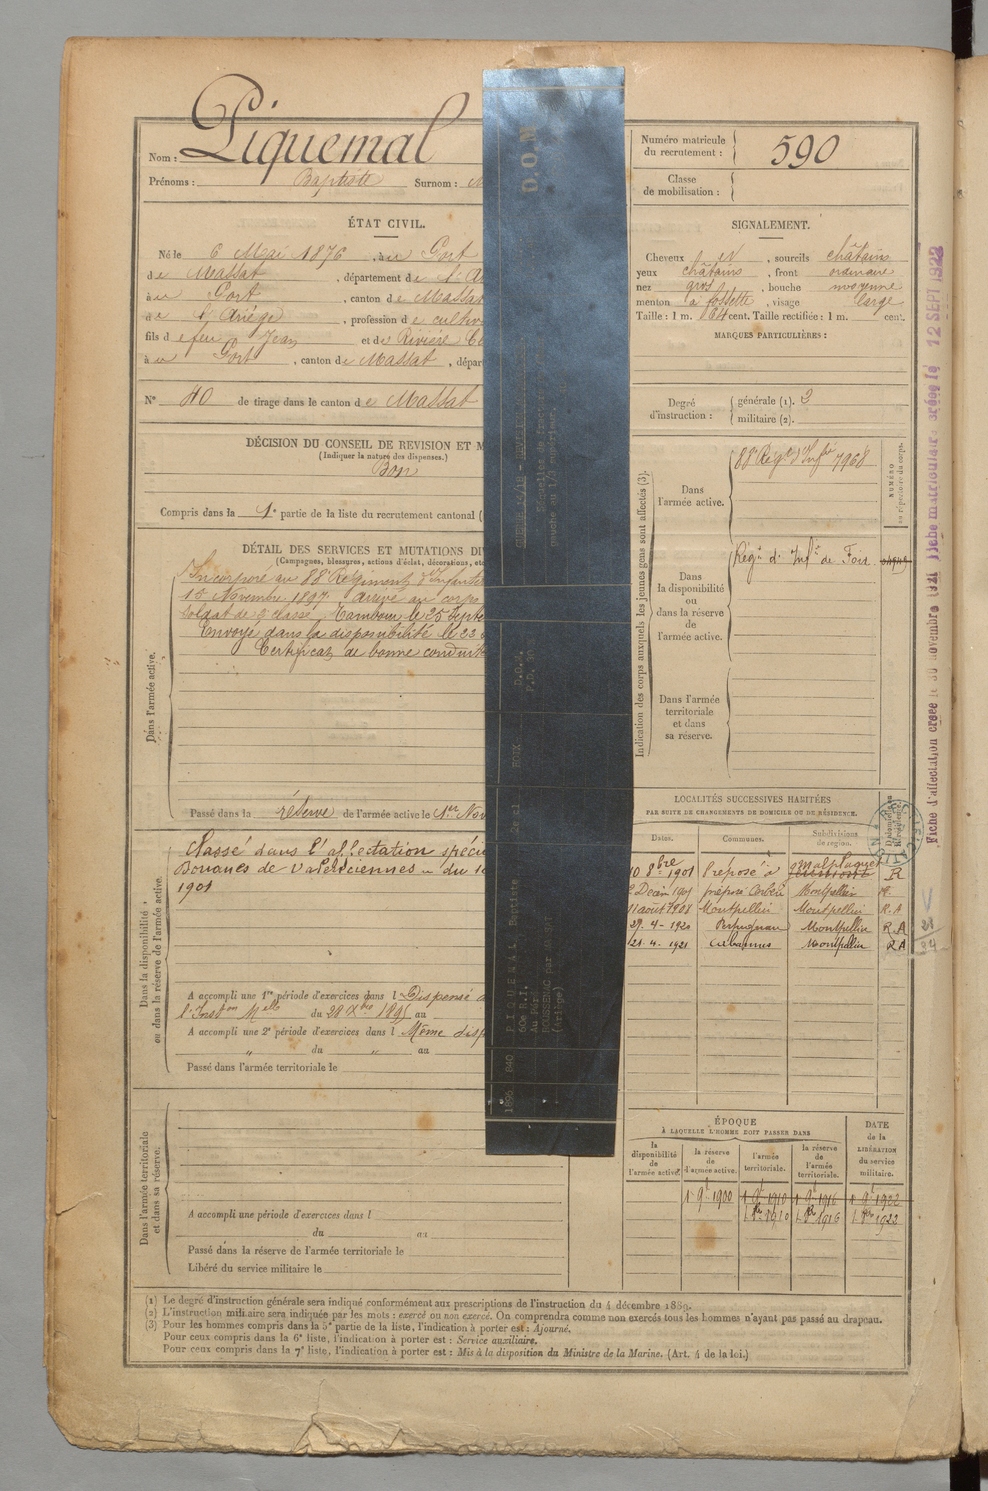 Nom : Piquemal
Prénoms : Baptiste Surnom :
Numéro matricule du recrutement : 590
Classe de mobilisation :
ÉTAT CIVIL.
Né le 6 Mai 1876, au Port
de Massat, département de l'A
à au Port, canton de Massat
de l'Ariège, profession de cultiv
fils de feu Jean et de Rivière
à au Port, canton de Massat, dépar
N° 40 de tirage dans le canton de Massat
DÉCISION DU CONSEIL DE REVISION ET M
(Indiquer la nature des dispenses.)
Bon
Compris dans la 1e partie de la liste du recrutement cantonal (
DÉTAIL DES SERVICES ET MUTATIONS DI
(Campagnes, blessures, actions d'éclat, décorations, etc
Dans l'armée active.
Incorporé au 88e Régiment d'Infanterie
15 Novembre 1897. Arrivé au corps
soldat de 2e classe. Tambour le 25 Septe
Envoyé dans la disponibilité le 23
Certificat de bonne conduite
Passé dans la réserve de l'armée active le 1er Nov
Dans la disponibilité ou dans la réserve de l'armée active.
Classé dans l'affectation spécia
Douanes de Valenciennes du 10
1901
A accompli une 1re période d'exercices dans l Dispensé
l'Inston Melle du 28 Xbre 1895 au
A accompli une 2e période d'exercices dans l Même disp
" du " au
Passé dans l'armée territoriale le
Dans l'armée territoriale et dans sa réserve.
A accompli une période d'exercices dans l
du au
Passé dans la réserve de l'armée territoriale le
Libéré du service militaire le
D.O.M
GUERRE 14/18
Séquelles de fracture
gauche au 1/3 supérieur.
D.O.M.
FOIX
2e cl
1896 840 PIQUEMAL Baptiste
60e R.I.
Au Port
BOUSSENAC par MASSAT
(Ariège)
SIGNALEMENT.
Cheveux , sourcils châtains
yeux châtains, front ordinaire
nez gros, bouche moyenne
menton à fossette, visage large
Taille : 1 m. 64 cent. Taille rectifiée : 1 m. cent.
MARQUES PARTICULIÈRES :
Degré d'instruction : générale (1). 2
militaire (2).
Indication des corps auxquels les jeunes gens sont affectés (3).
NUMÉRO au répertoire du corps.
Dans l'armée active. 88e Régt d'Infrie 7968
Dans la disponibilité ou dans la réserve de l'armée active. Régt d'Infie de Foix
Dans l'armée territoriale et dans sa réserve.
LOCALITÉS SUCCESSIVES HABITÉES
PAR SUITE DE CHANGEMENTS DE DOMICILE OU DE RÉSIDENCE.
Dates. Communes. Subdivisions de région.
10 8bre 1901 Préposé à Malplaquet R
2 Décem 1901 préposé Montpellier R.
11 août 1908 Montpellier Montpellier R.A
29. 4- 1920 Perpignan Montpellier R A
21. 4. 1921 Montpellier R A
ÉPOQUE
À LAQUELLE L'HOMME DOIT PASSER DANS
la disponibilité de l'armée active.
la réserve de l'armée active.
l'armée territoriale.
la réserve de l'armée territoriale.
DATE de la LIBÉRATION du service militaire.
1er 9bre 1900 1er 9bre 1910 1er 9bre 1916 1er 9bre 1922
1. 8bre 1910 1. 8bre 1916 1. 8bre 1922
Fiche d'affectation créée le 30 novembre 1921 Fiche matriculaire créée le 12 SEPT 1922
(1) Le degré d'instruction générale sera indiqué conformément aux prescriptions de l'instruction du 4 décembre 1889.
(2) L'instruction militaire sera indiquée par les mots : exercé ou non exercé. On comprendra comme non exercés tous les hommes n'ayant pas passé au drapeau.
(3) Pour les hommes compris dans la 5e partie de la liste, l'indication à porter est : Ajourné.
Pour ceux compris dans la 6e liste, l'indication à porter est : Service auxiliaire.
Pour ceux compris dans la 7e liste, l'indication à porter est : Mis à la disposition du Ministre de la Marine. (Art. 4 de la loi.)